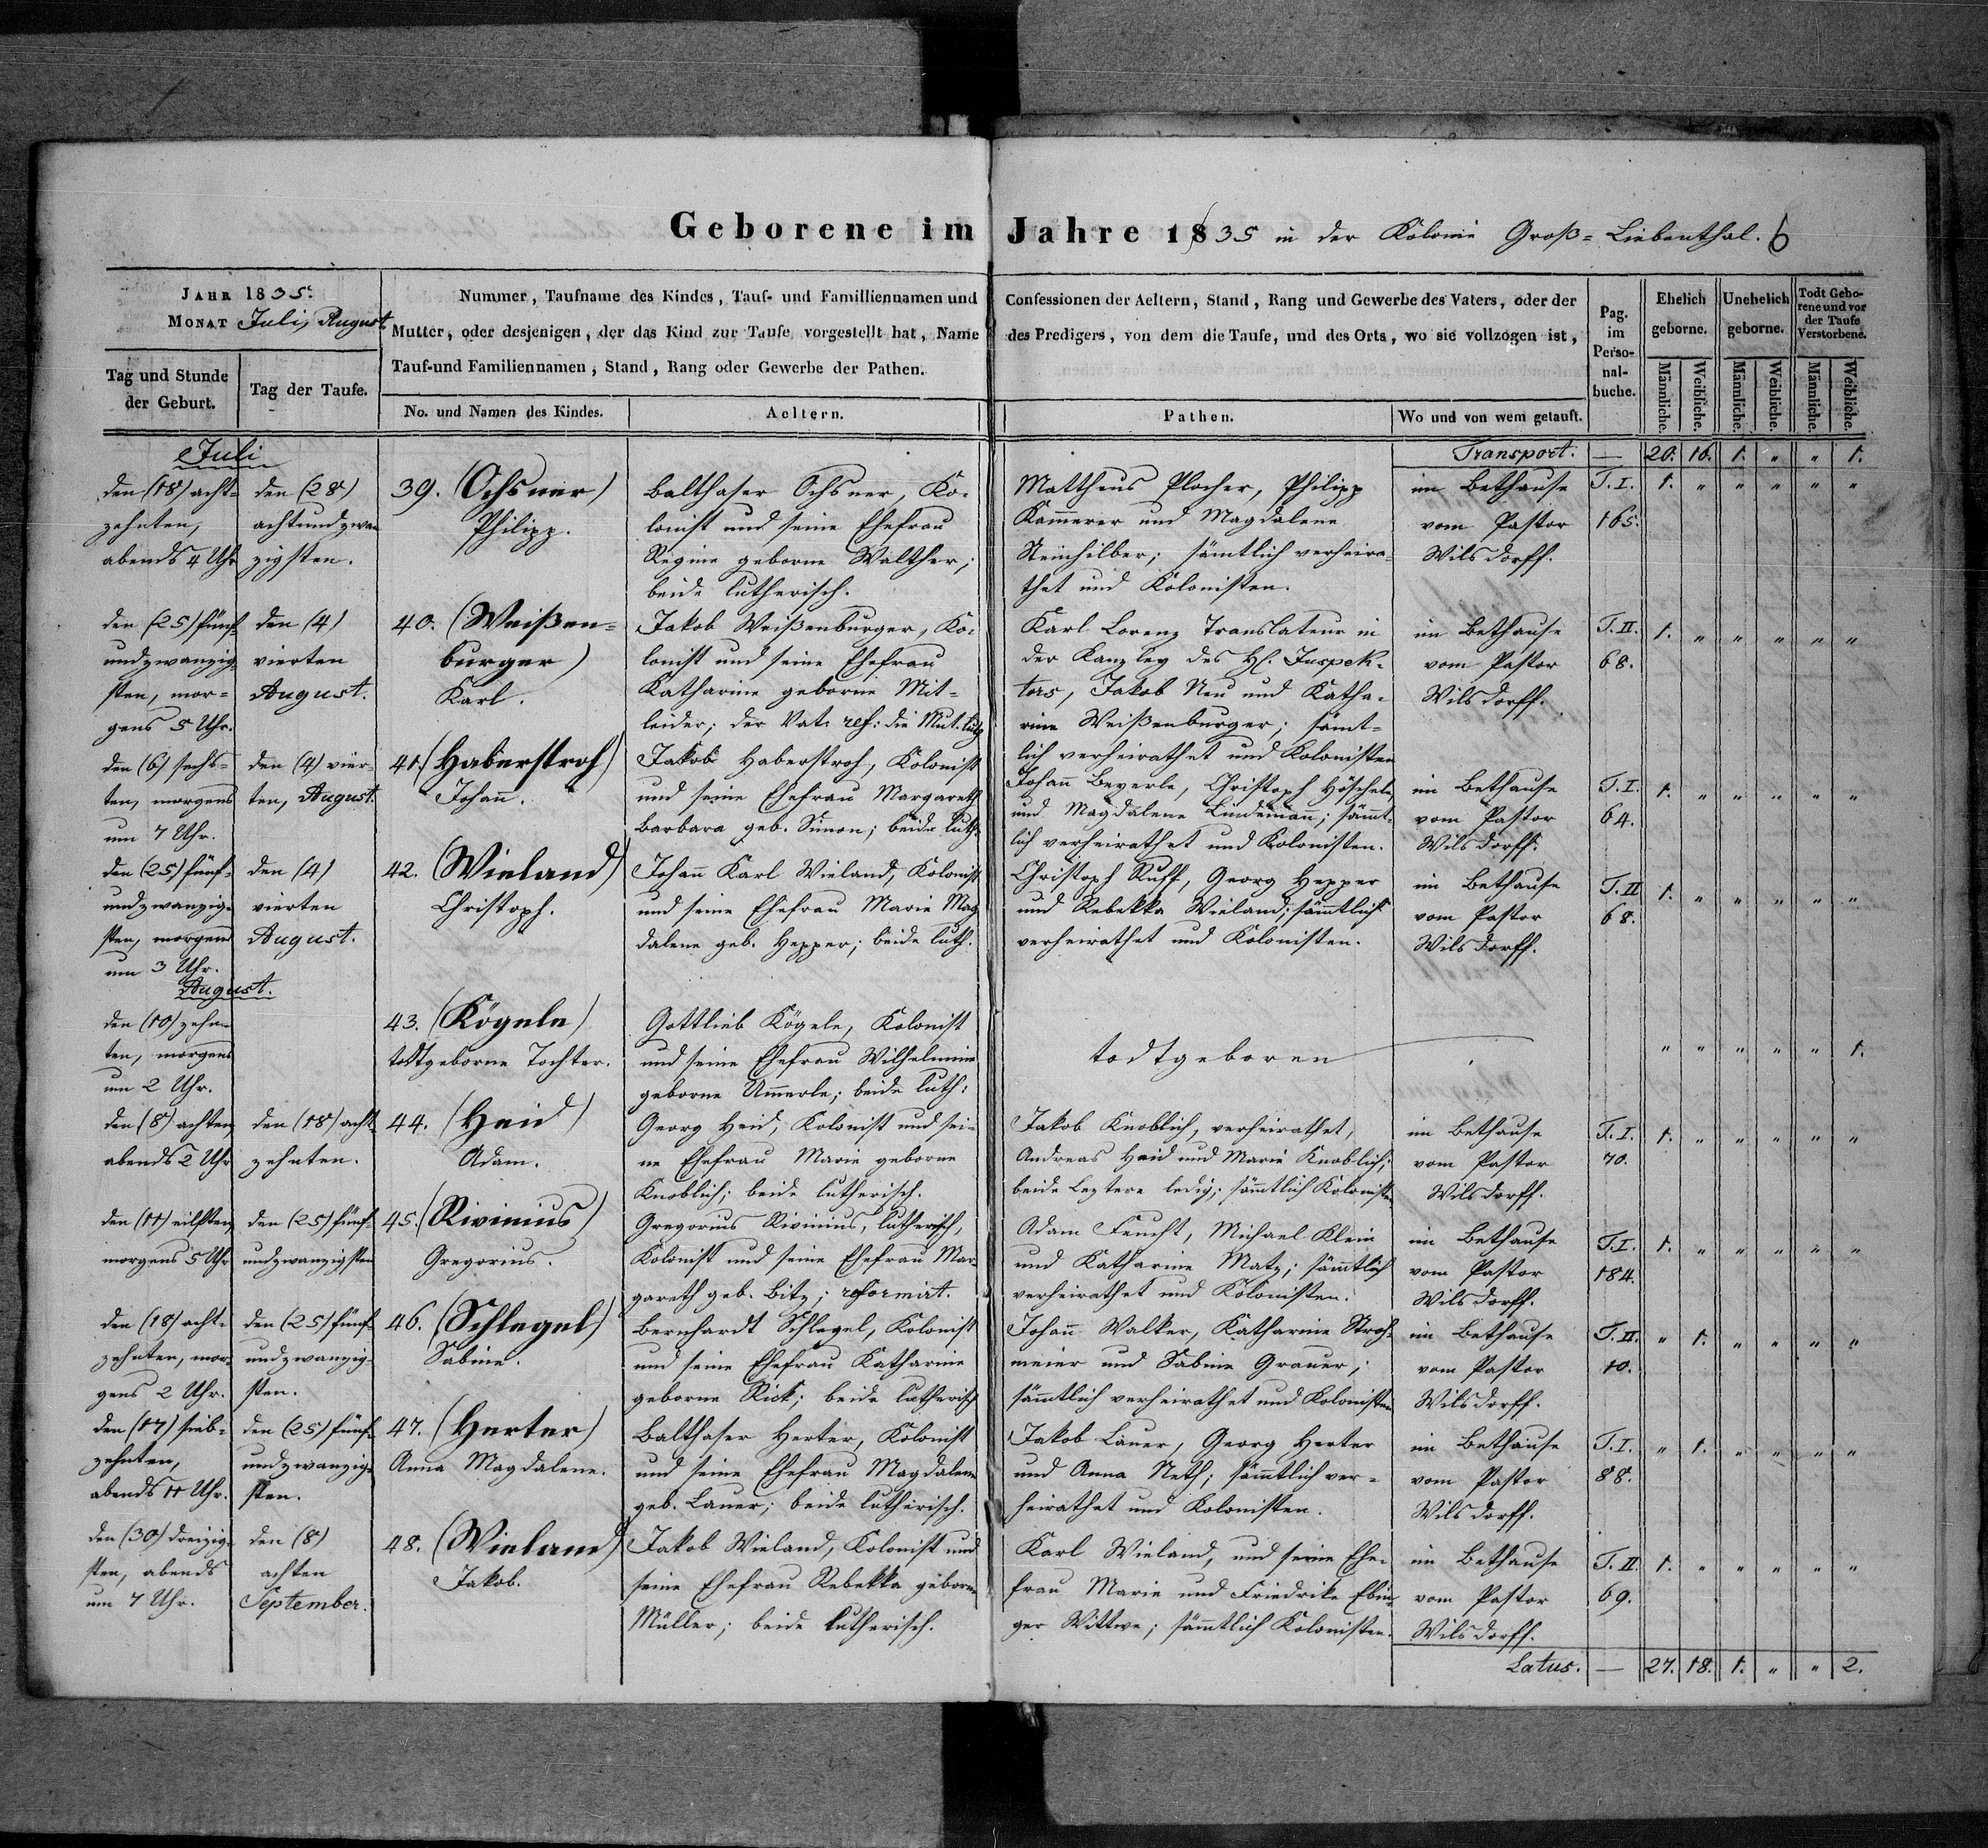 Geborene im Jahre 1835 in der Kolonie Groß-Liebenthal. 6
JAHR 1835.
MONAT Juli, August
Tag und Stunde der Geburt.
Tag der Taufe.
Nummer, Taufname des Kindes, Tauf- und Familliennamen und
Mutter, oder desjenigen, der das Kind zur Taufe vorgestellt hat, Name
Tauf-und Familiennamen, Stand, Rang oder Gewerbe der Pathen.
No. und Namen des Kindes.
Aeltern.
Confessionen der Aeltern, Stand, Rang und Gewerbe des Vaters, oder der
des Predigers, von dem die Taufe, und des Orts, wo sie vollzogen ist,
Pathen.
Wo und von wem getauft.
Pag. im Perso-nal-buche.
Ehelich geborne.
Unehelich geborne.
Todt Gebo-rene und vor der Taufe Verstorbene.
Männliche. Weibliche. Männliche. Weibliche. Männliche. Weibliche.
Transport. — 20. 16. 1. " " 1.
Juli
den (18) acht-
zehnten,
abends 4 Uhr
den (28)
achtundzwan
zigsten.
39. (Ochsner)
Philipp.
Balthaser Ochsner, Ko-
lonist und seine Ehefrau
Regine geborne Walther;
beide lutherisch.
Mattheus Plocher, Philipp
Kam̄erer und Magdalene
Steinhilber; sämtlich verheira-
thet und Kolonisten.
im Bethause
vom Pastor
Wilsdorff.
T. I.
165.
1. " " " " "
den (25) fünf-
undzwanzig-
sten, mor-
gens 5 Uhr.
den (4)
vierten
August.
40. (Weißen-
burger)
Karl.
Jakob Weißenburger, Ko-
lonist und seine Ehefrau
Katharine geborne Mit-
leider; der Vat. ref: die Mut. luth
Karl Lorenz Translateur in
der Kanzley des H. Inspek-
tors, Jakob Neu und Katha-
rine Weißenburger; sämt-
lich verheirathet und Kolonisten
im Bethause
vom Pastor
Wilsdorff.
T. II.
68.
1. " " " " "
den (6) sechs-
ten, morgens
um 7 Uhr.
den (4) vier-
ten, August.
41. (Haberstroh)
Johan̄.
Jakob Haberstroh, Kolonist
und seine Ehefrau Margareth
Barbara geb. Simon; beide luth.
Johan̄ Beyerle, Christoph Höschele,
und Magdalene Lindeman̄; säm̄t-
lich verheirathet und Kolonisten.
im Bethause
vom Pastor
Wilsdorff.
T. I.
64.
1. " " " " "
den (25) fünf-
undzwanzig-
sten, morgens
um 3 Uhr.
den (4)
vierten
August.
42. (Wieland)
Christoph.
Johan̄ Karl Wieland, Kolonist
und seine Ehefrau Marie Mag
dalene geb. Hepper; beide luth.
Christoph Ruff, Georg Hepper
und Rebekka Wieland; säm̄tlich
verheirathet und Kolonisten.
im Bethause
vom Pastor
Wilsdorff.
T. II
68.
1. " " " " "
August.
den (10) zehn-
ten, morgens
um 2 Uhr.
43. (Kögele)
todtgeborne Tochter.
Gottlieb Kögele, Kolonist
und seine Ehefrau Wilhelmine
geborne Um̄erle; beide luth:
todtgeboren
" " " " " 1.
den (8) achten,
abends 2 Uhr
den (18) acht-
zehnten.
44. (Heid)
Adam.
Georg Heid, Kolonist und sei-
ne Ehefrau Marie geborne
Knoblich; beide lutherisch.
Jakob Knoblich, verheirathet,
Andreas Heid und Marie Knoblich;
beide Leztere ledig; säm̄tlich Kolonisten
im Bethause
vom Pastor
Wilsdorff.
T. I.
70.
1. " " " " "
den (11) eilften,
morgens 5 Uhr
den (25) fünf-
undzwanzigsten
45. (Rivinius)
Gregorius.
Gregorius Rivinius, lutherisch,
Kolonist und seine Ehefrau Mar-
gareth geb. Bitz; reformirt.
Adam Feucht, Michael Klein
und Katharine Matz; säm̄tlich
verheirathet und Kolonisten.
im Bethause
vom Pastor
Wilsdorff.
T. I.
184.
1. " " " " "
den (18) acht-
zehnten, mor-
gens 2 Uhr.
den (25) fünf-
undzwanzig-
sten.
46. (Schlegel)
Sabine.
Bernhardt Schlegel, Kolonist
und seine Ehefrau Katharine
geborne Rick; beide lutherisch
Johan̄ Walker, Katharine Stroh-
meier und Sabine Grauer;
säm̄tlich verheirathet und Kolonisten
im Bethause
vom Pastor
Wilsdorff.
T. II.
10.
" 1. " " " "
den (17) sieb-
zehnten,
abends 11 Uhr.
den (25) fünf-
undzwanzig-
sten.
47. (Herter)
Anna Magdalene.
Balthaser Herter, Kolonist
und seine Ehefrau Magdalene
geb. Lauer; beide lutherisch.
Jakob Lauer, Georg Herter
und Anna Neth; säm̄tlich ver-
heirathet und Kolonisten.
im Bethause
vom Pastor
Wilsdorff.
T. I.
88.
" 1. " " " "
den (30) dreizig-
sten, abends
um 7 Uhr.
den (8)
achten
September.
48. (Wieland)
Jakob.
Jakob Wieland, Kolonist und
seine Ehefrau Rebekka geborne
Müller; beide lutherisch.
Karl Wieland, und seine Ehe-
frau Marie und Friedrike Ebin-
ger Wittwe; säm̄tlich Kolonisten.
im Bethause
vom Pastor
Wilsdorff.
T. II.
69.
1. " " " " "
Latus. — 27. 18. 1. " " 2.